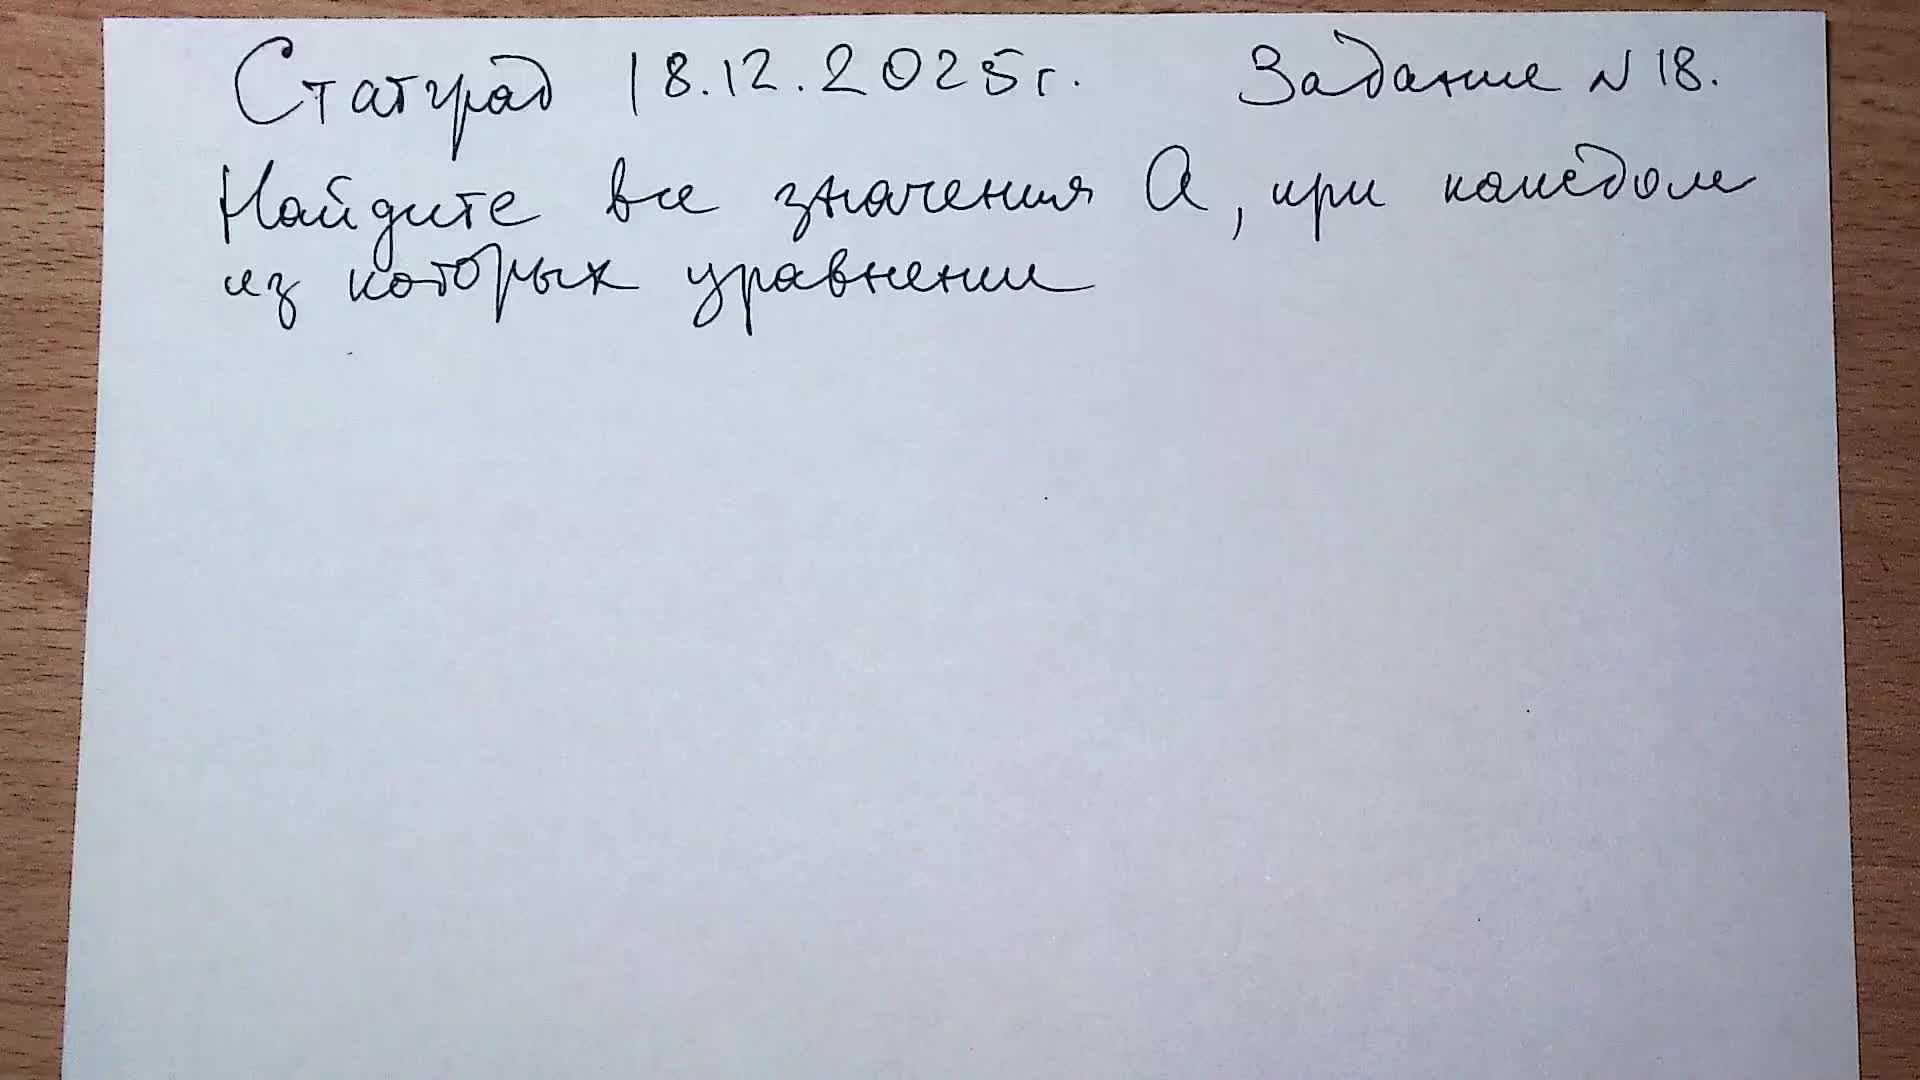 Статград 18.12.2025г. Задание N18.
Найдите все значения a, при каждом
из которых уравнении